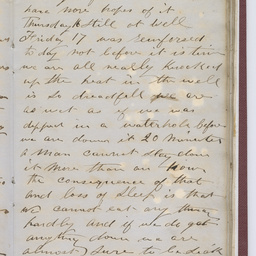 have more hopes of it
Thursday 16 Still at Well
Friday 17 was
to day not before it is time
we are all really knocked
up the heat in the well
is so dreadfull we are
as wet as if we was
dipped in a waterhole before
we are down it 20 minutes
a man cannot stay down
it more than an hour
the consequence of that
and loss of sleep is that
we cannot eat any thing
hardly and if we do get
anything down we are
almost sure to be sick